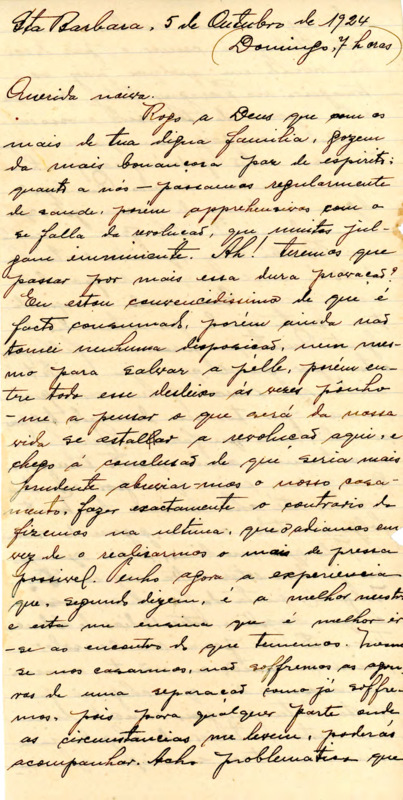 Sta Barbara, 5 de Outubro de 1924
(Domingo, 7 horas)
Querida noiva.
Rogo a Deus que com os
mais de tua digna familia, gozem
da mais bonançosa paz de espirito;
quanto a nós - passamos regularmente
de saude, porém apprehensivos com o
se falla da revolução, que muitos jul-
gam imminente. Ah! teremos que
passar por mais essa dura provação?
Eu estou convencidissimo de que é
facto consumado, porém ainda não
tomei nenhuma disposição, nem mes-
mo para salvar a pélle, porém en-
tre todo esse desleixo ás vezes pônho
-me a pensar o que será da nossa
vida se estallar a revolução aqui, e
chego á conclusão de que seria mais
prudente abreviarmos o nosso casa-
mento, fazer exactamente o contrario do
fizemos na ultima, que adiamos em
vez de o realisarmos o mais de pressa
possivel. Tenho agora a experiencia
que, segundo dizem, é a melhor mestra
e esta me ensina que é melhor ir
-se ao encontro do que tememos.
se nos casarmos, não soffremos as agru-
ras de uma separação como já soffre-
mos, pois para qualquer parte onde
as circumstancias me levem, poderás
acompanhar. Acho problematico que